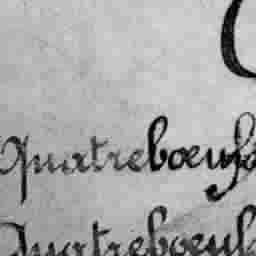 Quatreboeufs
Quatreboeufs